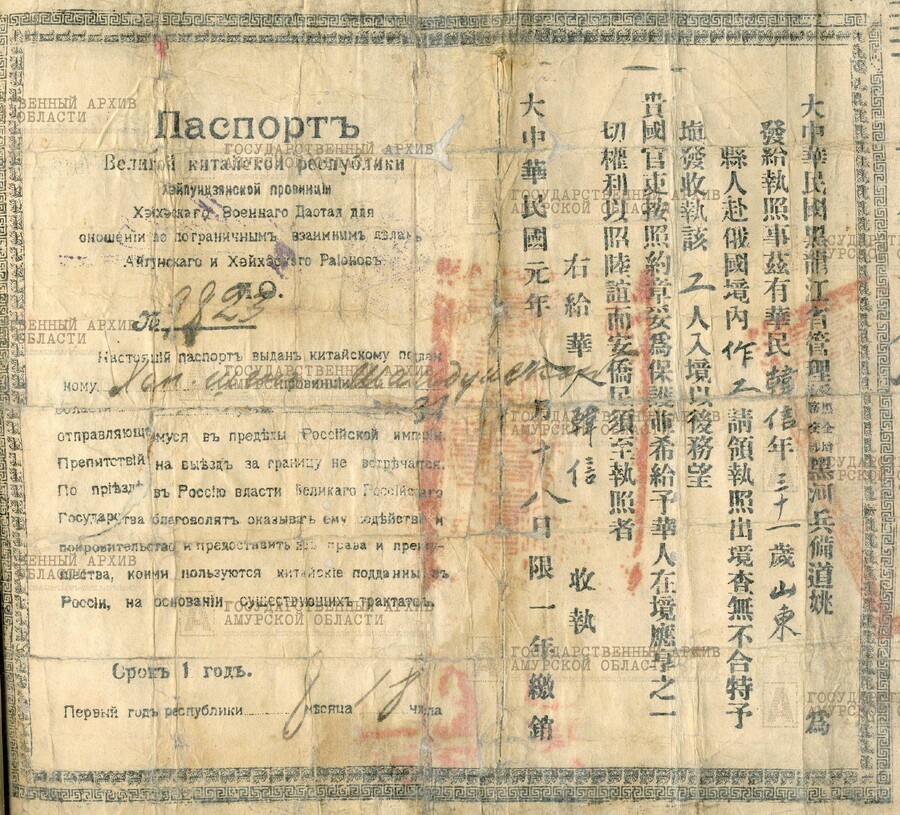 Паспортъ
Великой китайской республики
Хэйлундзянской провинціи
Хэйхэскаго Военнаго Даотая для
сношеній по пограничнымъ взаимнымъ дѣламъ
Айгунскаго и Хэйхэскаго Раіоновъ
№ 9823
Настоящій паспортъ выданъ китайскому поддан
ному Хан-син провинціи Шандунской
области 31
отправляющемуся въ предѣлы Россійской имперіи.
Препятствій на выѣздъ за границу не встрѣчается.
По пріѣздѣ въ Россію власти Великаго Россійскаго
Государства благоволятъ оказывать ему содѣйствіе и
покровительство и предоставить всѣ права и преиму-
щества, коими пользуются китайскіе подданные въ
Россіи, на основаніи существующихъ трактатовъ.
Срокъ 1 годъ.
Первый годъ республики 8 мѣсяца 18 числа
大中華民國黑龍江省管理 黑河兵備道姚 為
發給執照事茲有華民韓信年三十一歲山東
縣人赴俄國境內作工請領執照出境查無不合特予
塡發收執該工人入境以後務望
貴國官吏按照約章妥爲保護並希給予華人在境應享之一
切權利以照陸誼而安僑民須至執照者
右給華 韓信 收執
大中華民國元年 八月十八日限一年繳銷
ГОСУДАРСТВЕННЫЙ АРХИВ
АМУРСКОЙ ОБЛАСТИ